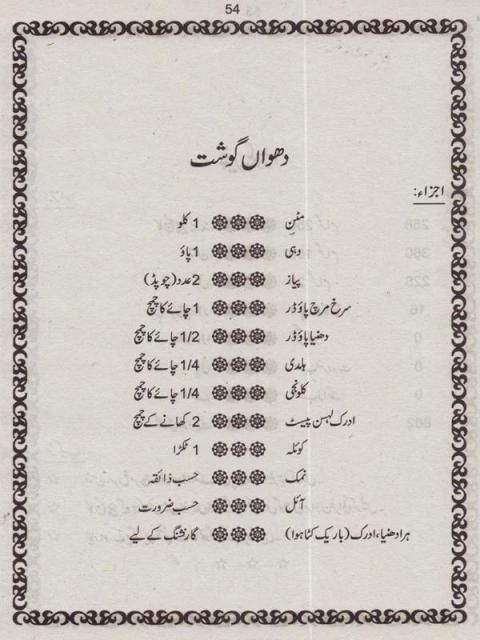 54
دھواں گوشت
اجزاء:
مٹن 1 کلو
دہی 1 پاؤ
پیاز 2 عدد (چوپڈ)
سرخ مرچ پاؤڈر 1 چائے کا چمچ
دھنیا پاؤڈر 1/2 چائے کا چمچ
ہلدی 1/4 چائے کا چمچ
کلونجی 1/4 چائے کا چمچ
ادرک لہسن پیسٹ 2 کھانے کے چمچ
کوئلہ 1 ٹکڑا
نمک حسب ذائقہ
آئل حسب ضرورت
ہرا دھنیا، ادرک (باریک کٹا ہوا) گارنشنگ کے لیے